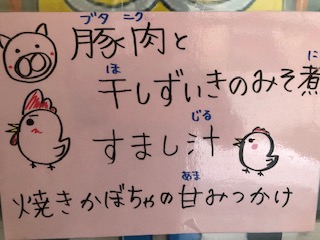 ブタ ニク
豚肉と
ほ に
干しずいきのみそ煮
じる
すまし汁
あま
焼きかぼちゃの甘みつかけ